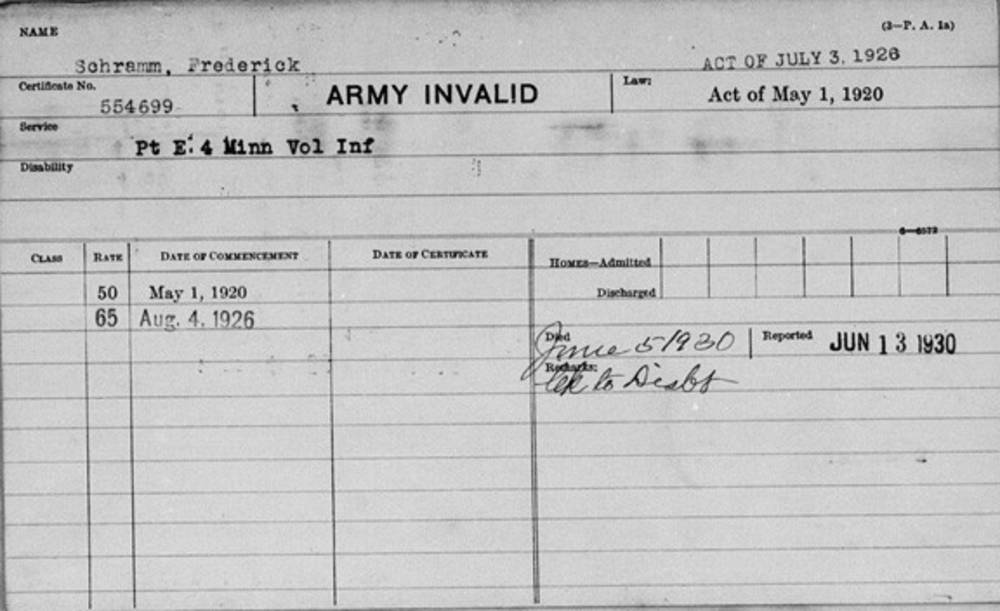 NAME (3—P. A. 1a)
Schramm, Frederick ACT OF JULY 3, 1926
Certificate No. 554699 ARMY INVALID Law: Act of May 1, 1920
Service Pt E. 4 Minn Vol Inf
Disability
6—6572
CLASS RATE DATE OF COMMENCEMENT DATE OF CERTIFICATE HOMES—Admitted
50 May 1, 1920 Discharged
65 Aug. 4, 1926
Died June 5 1930 Reported JUN 13 1930
Remarks: to Disbt